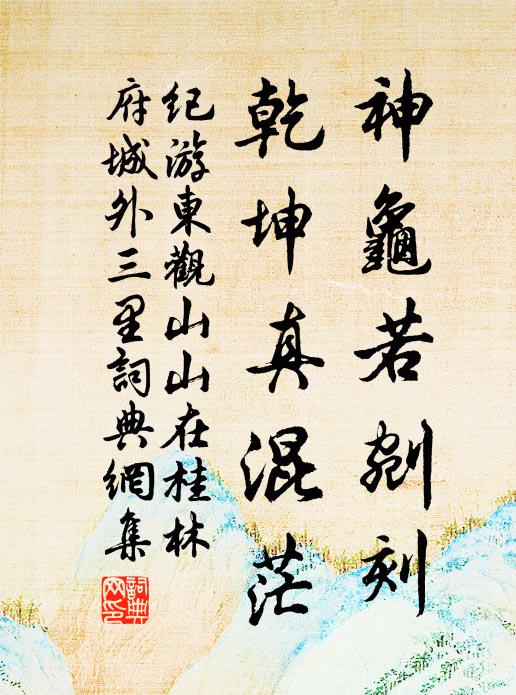 神龜若剜刻
乾坤真混茫
紀游東觀山山在桂林
府城外三里詞典網集
詞典网印